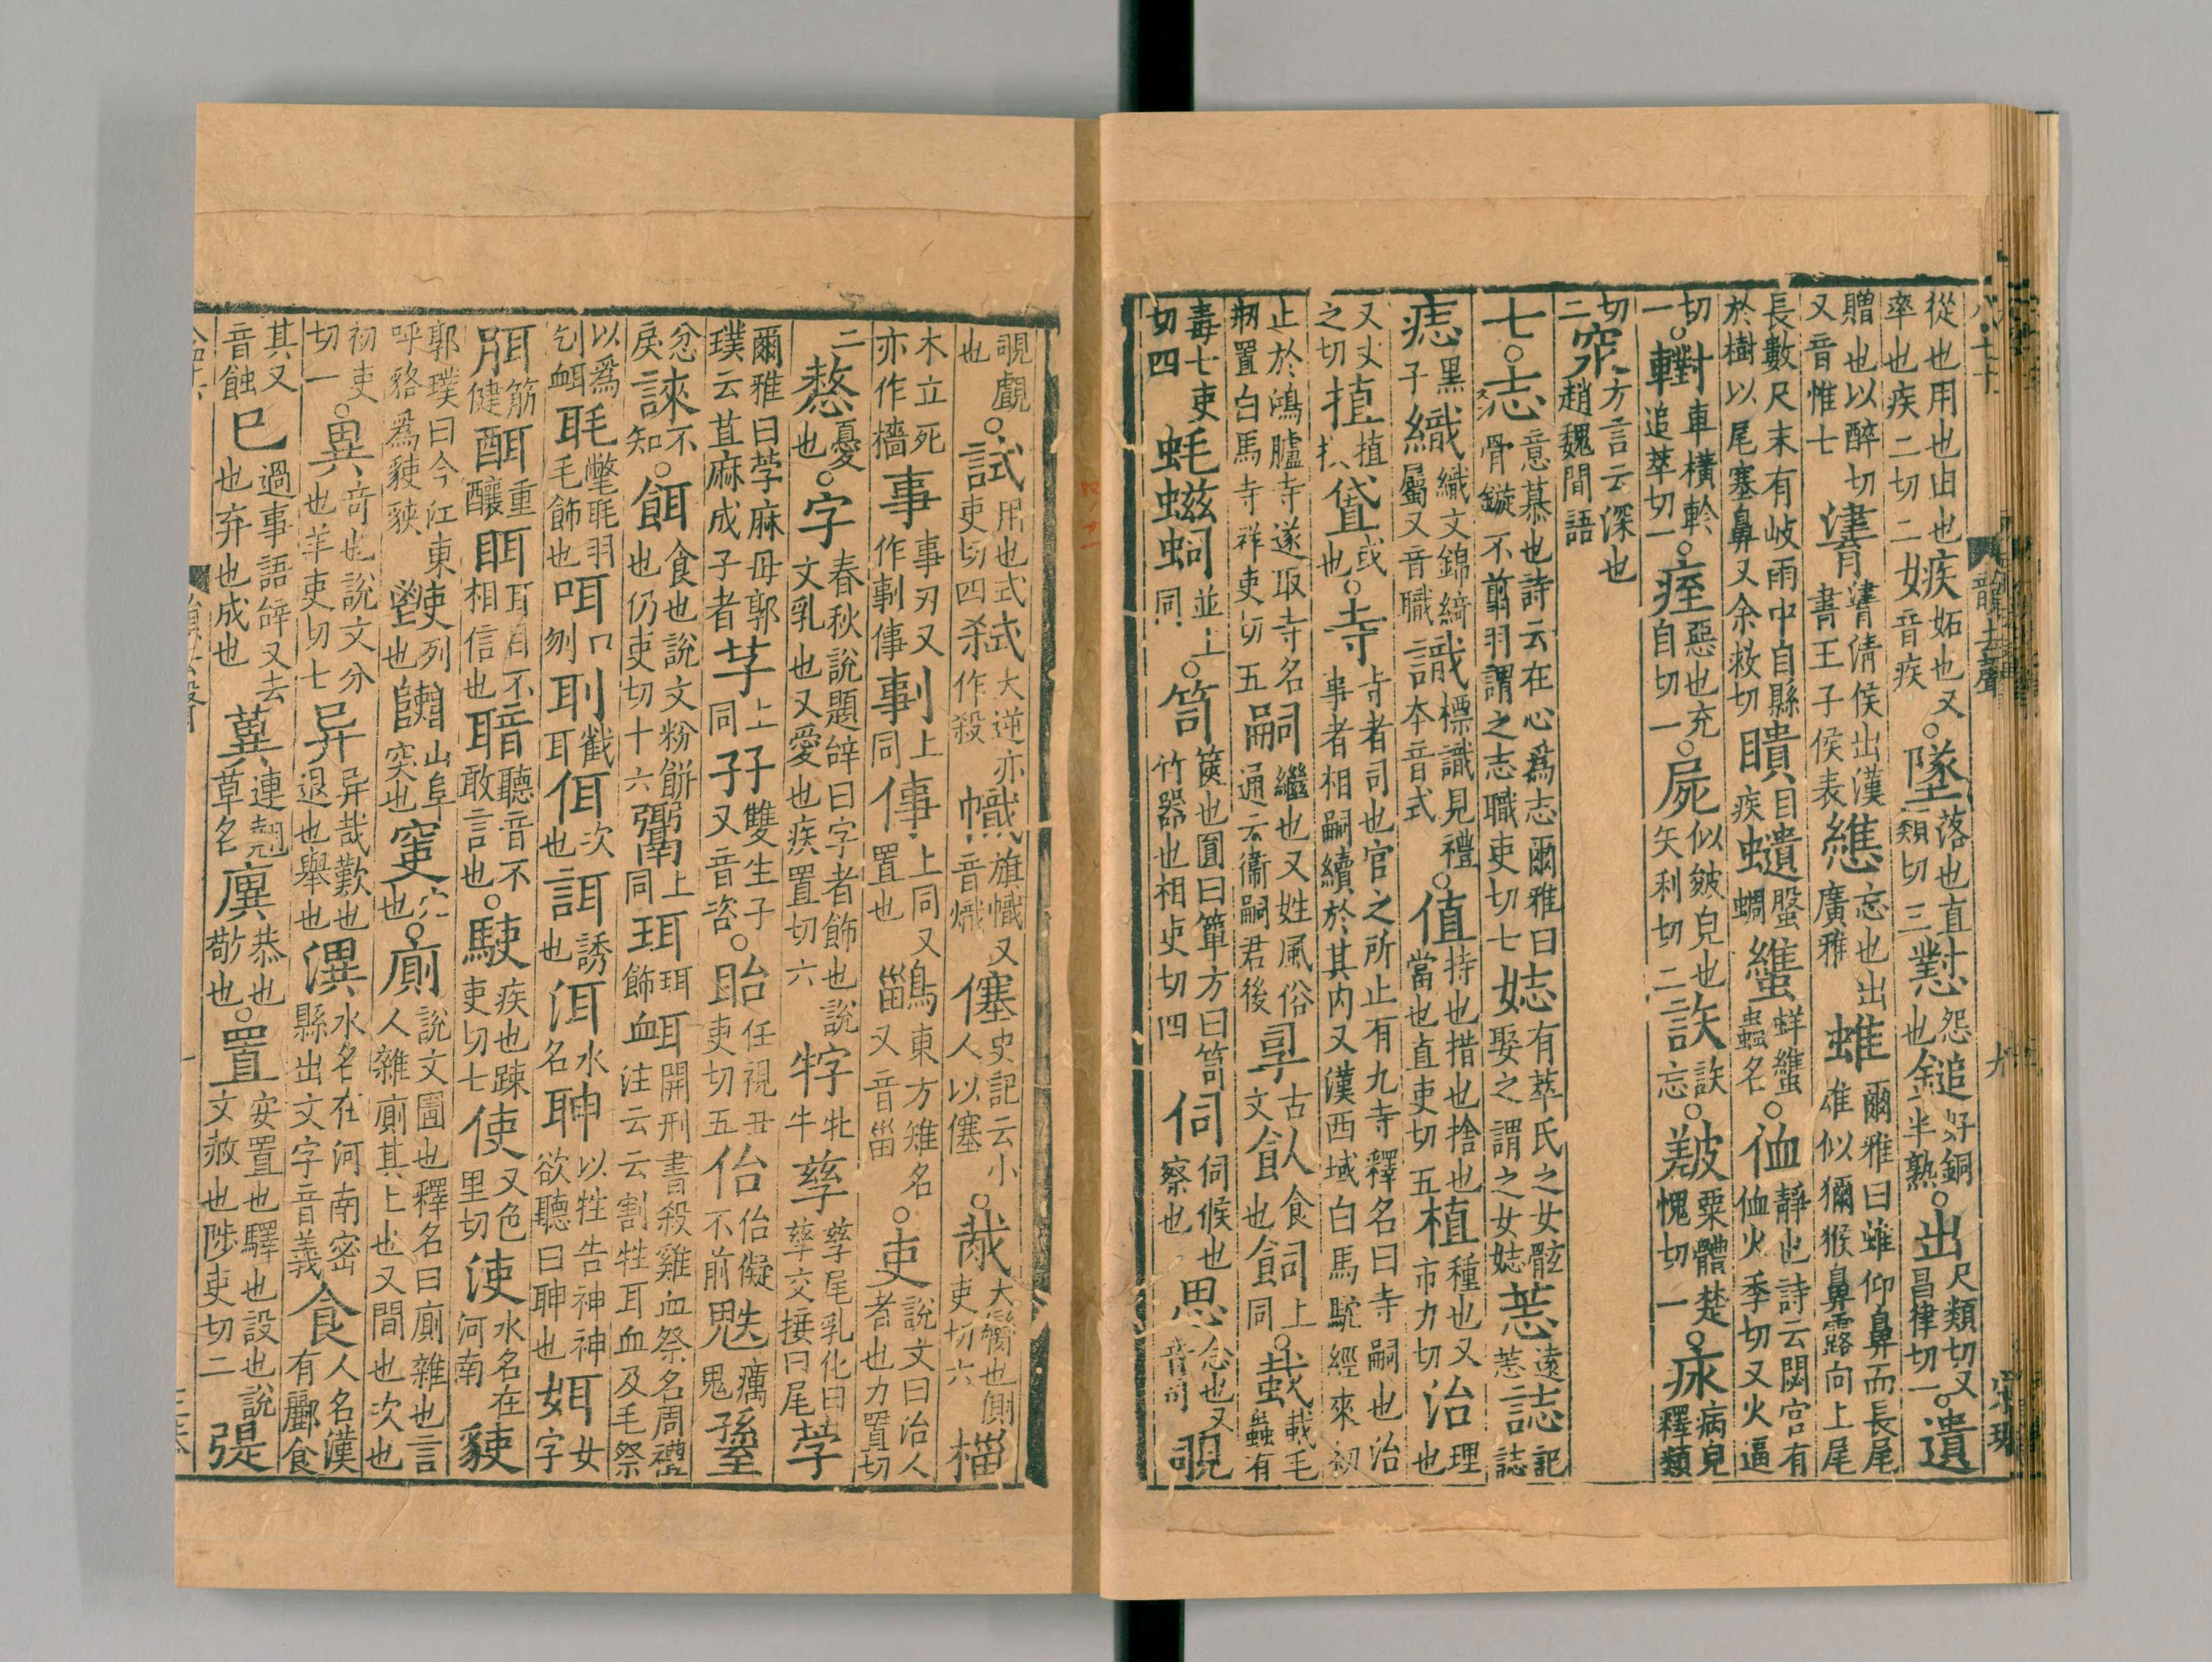 韻去聲 九 宋琚
從也用也由也率也疾二切二嫉妬也又音疾○墜落也直類切三懟怨也鎚好銅半熟○出尺類切又昌律切一○遺
贈也以醉切又音惟七清侯出漢書王子侯表忘也出廣雅蜼爾雅曰蜼仰鼻而長尾雄似獼猴鼻露向上尾
長數尺末有岐雨中自縣於樹以尾塞鼻又余救切瞶目疾蠵蛘蠵蟲名○侐靜也詩云閟宮有侐火季切又火逼
切一○轛車橫軨追萃切一○痓惡也充自切一○屍似皴皃也矢利切二䛈䛈忘○粟體楚愧切一○病皃釋類
切二方言云深也趙魏間語
七○志意慕也詩云在心爲志爾雅曰骨鏃不翦羽謂之志職吏切七娡有莘氏之女骸娶之謂之女娡遠誌記誌
痣黑子織織文錦綺屬又音職識標識見禮本音式○值持也措也捨也當也直吏切五植種也又市力切治理也
又丈之切植或也○寺寺者司也官之所止有九寺釋名曰寺嗣也治事者相嗣續於其内又漢西域白馬駞經來初
止於鴻臚寺遂取寺名刱置白馬寺祥吏切五嗣繼也又姓風俗通云衞嗣君後古文飤食也飼上同○蛓載毛蟲有
毒七吏切四蚝並上同○笥篋也圓曰簞方曰笥竹器也相吏切四伺伺候也察也思念也又音司覗
覗覰也○試用也式吏切四弑大逆亦作殺幟旗幟又音熾僿史記云小人以僿○胾大臠也側吏切六椔
木立死亦作檣事事刃又作剚倳剚上同倳上同又置也鶅東方雉名又音甾○吏說文曰治人者也力置切
二憗憂也○字春秋說題辝曰字者飾也說文乳也又愛也疾置切六牸牝牛孳孳尾乳化曰孳交接曰尾茡
爾雅曰茡麻母郭璞云苴麻成子者芓上同孖雙生子又音咨○眙任視丑吏切五佁佁儗不前癘鬼
忿戾誺不知○餌食也說文粉餅也仍吏切十六上同珥珥飾衈開刑書殺雞血祭名周禮注云云割牲耳血及毛祭
以爲刉衈毦氅毦羽毛飾也咡口吻刵截耳佴次也誀誘也洱水名以牲告神神欲聽曰也女字
筋健重釀眲耳目不相信也聽音不敢言也○駛疾也踈吏切七使又色里切水名在河南
郭璞曰今江東呼貉爲列也山阜突也穴也○廁說文圊也釋名曰廁雜也言人雜廁其上也又間也次也
初吏切一○異奇也說文分也羊吏切七异异哉歎也退也舉也潩水名在河南密縣出文字音義食人名漢有酈食
其又音蝕已過事語辝又去也弃也成也連翹草名廙恭也敬也○置安置也驛也設也說文赦也陟吏切二